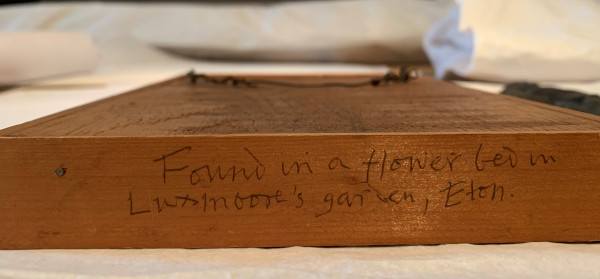 Found in a flower bed in
Luxmoore's garden, Eton.